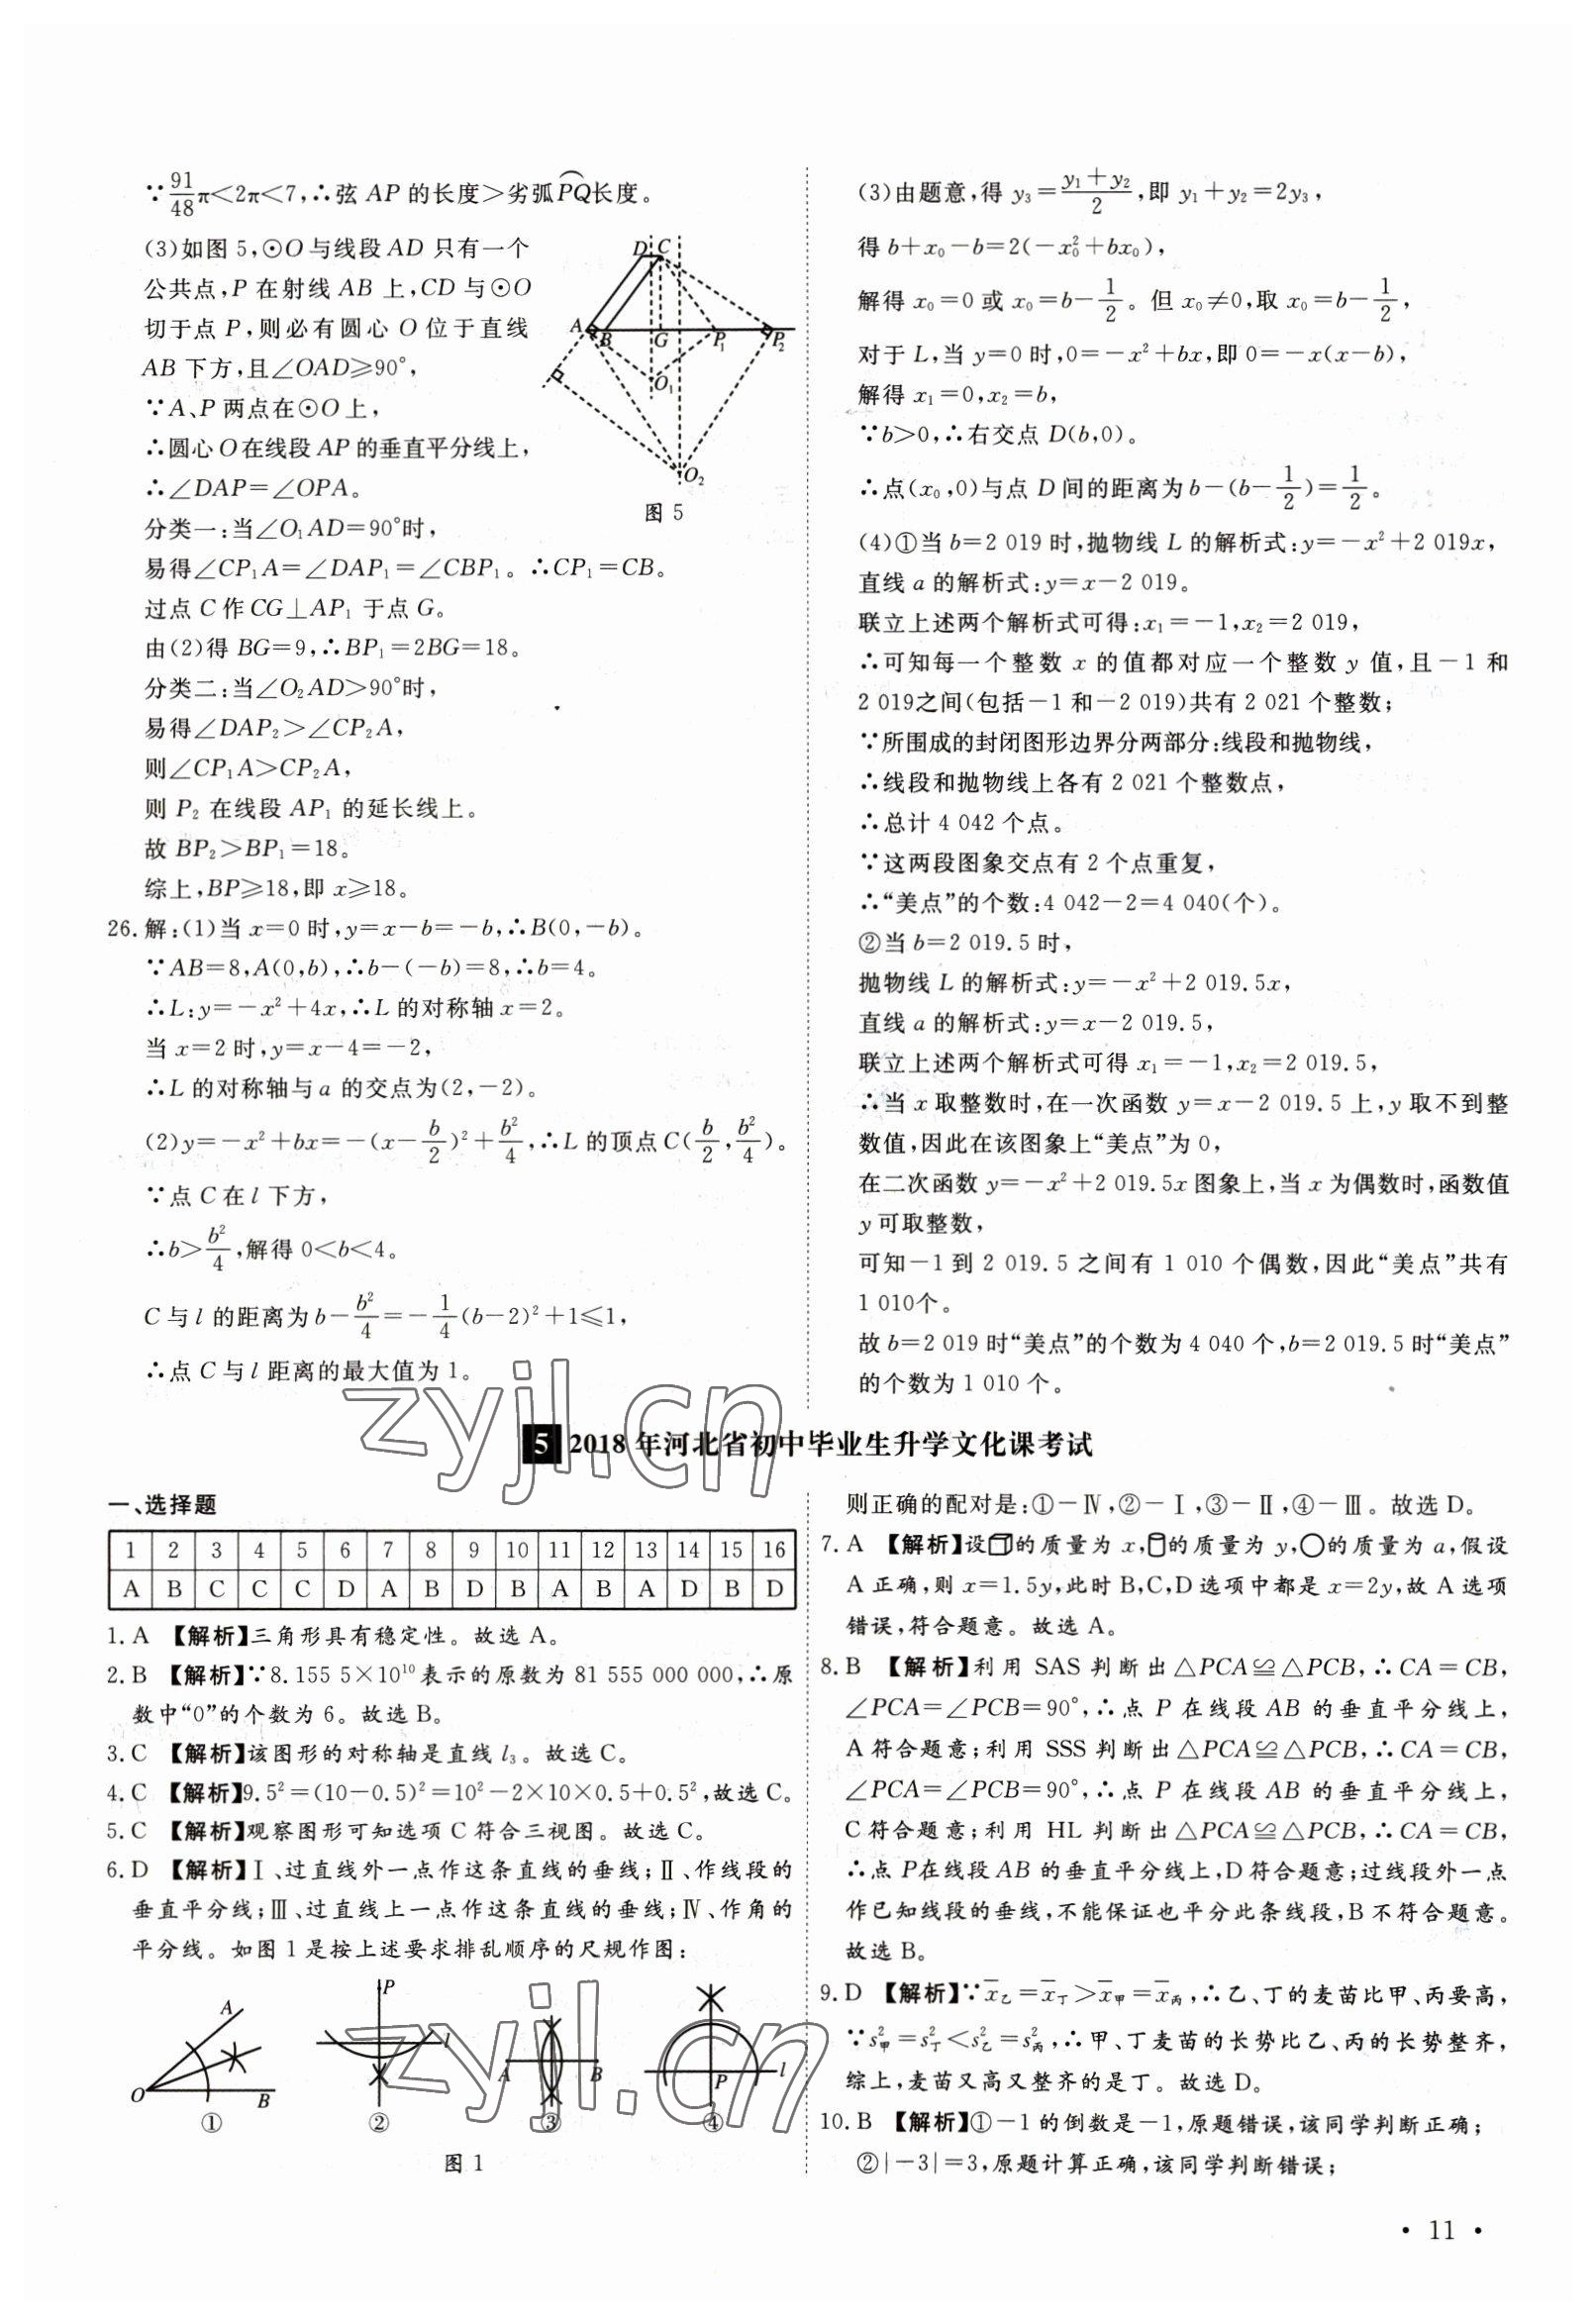 ∵91/48π<2π<7,∴弦 AP 的长度>劣弧PQ长度。
(3)如图 5,⊙O 与线段 AD 只有一个
公共点,P 在射线 AB 上,CD 与⊙O
切于点 P,则必有圆心 O 位于直线
AB 下方,且∠OAD≥90°,
∵A、P 两点在⊙O 上,
∴圆心 O 在线段 AP 的垂直平分线上,
∴∠DAP=∠OPA。
分类一:当∠O₁AD=90°时,
易得∠CP₁A=∠DAP₁=∠CBP₁。∴CP₁=CB。
过点 C 作 CG⊥AP₁ 于点 G。
由(2)得 BG=9,∴BP₁=2BG=18。
分类二:当∠O₂AD>90°时,
易得∠DAP₂>∠CP₂A,
则∠CP₁A>CP₂A,
则 P₂ 在线段 AP₁ 的延长线上。
故 BP₂>BP₁=18。
综上,BP≥18,即 x≥18。
D C
A B G P₁ P₂
O₁
O₂
图 5
26.解:(1)当 x=0 时,y=x-b=-b,∴B(0,-b)。
∵AB=8,A(0,b),∴b-(-b)=8,∴b=4。
∴L:y=-x²+4x,∴L 的对称轴 x=2。
当 x=2 时,y=x-4=-2,
∴L 的对称轴与 a 的交点为(2,-2)。
(2)y=-x²+bx=-(x-b/2)²+b²/4,∴L 的顶点 C(b/2,b²/4)。
∵点 C 在 l 下方,
∴b>b²/4,解得 0<b<4。
C 与 l 的距离为 b-b²/4=-1/4(b-2)²+1≤1,
∴点 C 与 l 距离的最大值为 1。
(3)由题意,得 y₃=(y₁+y₂)/2,即 y₁+y₂=2y₃,
得 b+x₀-b=2(-x₀²+bx₀),
解得 x₀=0 或 x₀=b-1/2。但 x₀≠0,取 x₀=b-1/2,
对于 L,当 y=0 时,0=-x²+bx,即 0=-x(x-b),
解得 x₁=0,x₂=b,
∵b>0,∴右交点 D(b,0)。
∴点(x₀,0)与点 D 间的距离为 b-(b-1/2)=1/2。
(4)①当 b=2 019 时,抛物线 L 的解析式:y=-x²+2 019x,
直线 a 的解析式:y=x-2 019。
联立上述两个解析式可得:x₁=-1,x₂=2 019,
∴可知每一个整数 x 的值都对应一个整数 y 值,且-1 和
2 019之间(包括-1 和-2 019)共有 2 021 个整数;
∵所围成的封闭图形边界分两部分:线段和抛物线,
∴线段和抛物线上各有 2 021 个整数点,
∴总计 4 042 个点。
∵这两段图象交点有 2 个点重复,
∴“美点”的个数:4 042-2=4 040(个)。
②当 b=2 019.5 时,
抛物线 L 的解析式:y=-x²+2 019.5x,
直线 a 的解析式:y=x-2 019.5,
联立上述两个解析式可得 x₁=-1,x₂=2 019.5,
∴当 x 取整数时,在一次函数 y=x-2 019.5 上,y 取不到整
数值,因此在该图象上“美点”为 0,
在二次函数 y=-x²+2 019.5x 图象上,当 x 为偶数时,函数值
y 可取整数,
可知-1 到 2 019.5 之间有 1 010 个偶数,因此“美点”共有
1 010个。
故 b=2 019 时“美点”的个数为 4 040 个,b=2 019.5 时“美点”
的个数为 1 010 个。
5 2018 年河北省初中毕业生升学文化课考试
一、选择题
1 2 3 4 5 6 7 8 9 10 11 12 13 14 15 16
A B C C C D A B D B A B A D B D
1. A 【解析】三角形具有稳定性。故选 A。
2. B 【解析】∵8.155 5×10¹⁰表示的原数为 81 555 000 000,∴原
数中“0”的个数为 6。故选 B。
3. C 【解析】该图形的对称轴是直线 l₃。故选 C。
4. C 【解析】9.5²=(10-0.5)²=10²-2×10×0.5+0.5²,故选 C。
5. C 【解析】观察图形可知选项 C 符合三视图。故选 C。
6. D 【解析】Ⅰ、过直线外一点作这条直线的垂线;Ⅱ、作线段的
垂直平分线;Ⅲ、过直线上一点作这条直线的垂线;Ⅳ、作角的
平分线。如图 1 是按上述要求排乱顺序的尺规作图:
A O B
P l
A B
P l
① ② ③ ④
图 1
则正确的配对是:①-Ⅳ,②-Ⅰ,③-Ⅱ,④-Ⅲ。故选 D。
7. A 【解析】设的质量为 x,的质量为 y,○的质量为 a,假设
A 正确,则 x=1.5y,此时 B,C,D 选项中都是 x=2y,故 A 选项
错误,符合题意。故选 A。
8. B 【解析】利用 SAS 判断出△PCA≌△PCB,∴CA=CB,
∠PCA=∠PCB=90°,∴点 P 在线段 AB 的垂直平分线上,
A 符合题意;利用 SSS 判断出△PCA≌△PCB,∴CA=CB,
∠PCA=∠PCB=90°,∴点 P 在线段 AB 的垂直平分线上,
C 符合题意;利用 HL 判断出△PCA≌△PCB,∴CA=CB,
∴点 P在线段 AB 的垂直平分线上,D 符合题意;过线段外一点
作已知线段的垂线,不能保证也平分此条线段,B 不符合题意。
故选 B。
9. D 【解析】∵x̄乙=x̄丁>x̄甲=x̄丙,∴乙、丁的麦苗比甲、丙要高,
∵s²甲=s²丁<s²乙=s²丙,∴甲、丁麦苗的长势比乙、丙的长势整齐,
综上,麦苗又高又整齐的是丁。故选 D。
10. B 【解析】①-1 的倒数是-1,原题错误,该同学判断正确;
②|-3|=3,原题计算正确,该同学判断错误;
zyjl.cn
zyjl.cn
· 11 ·